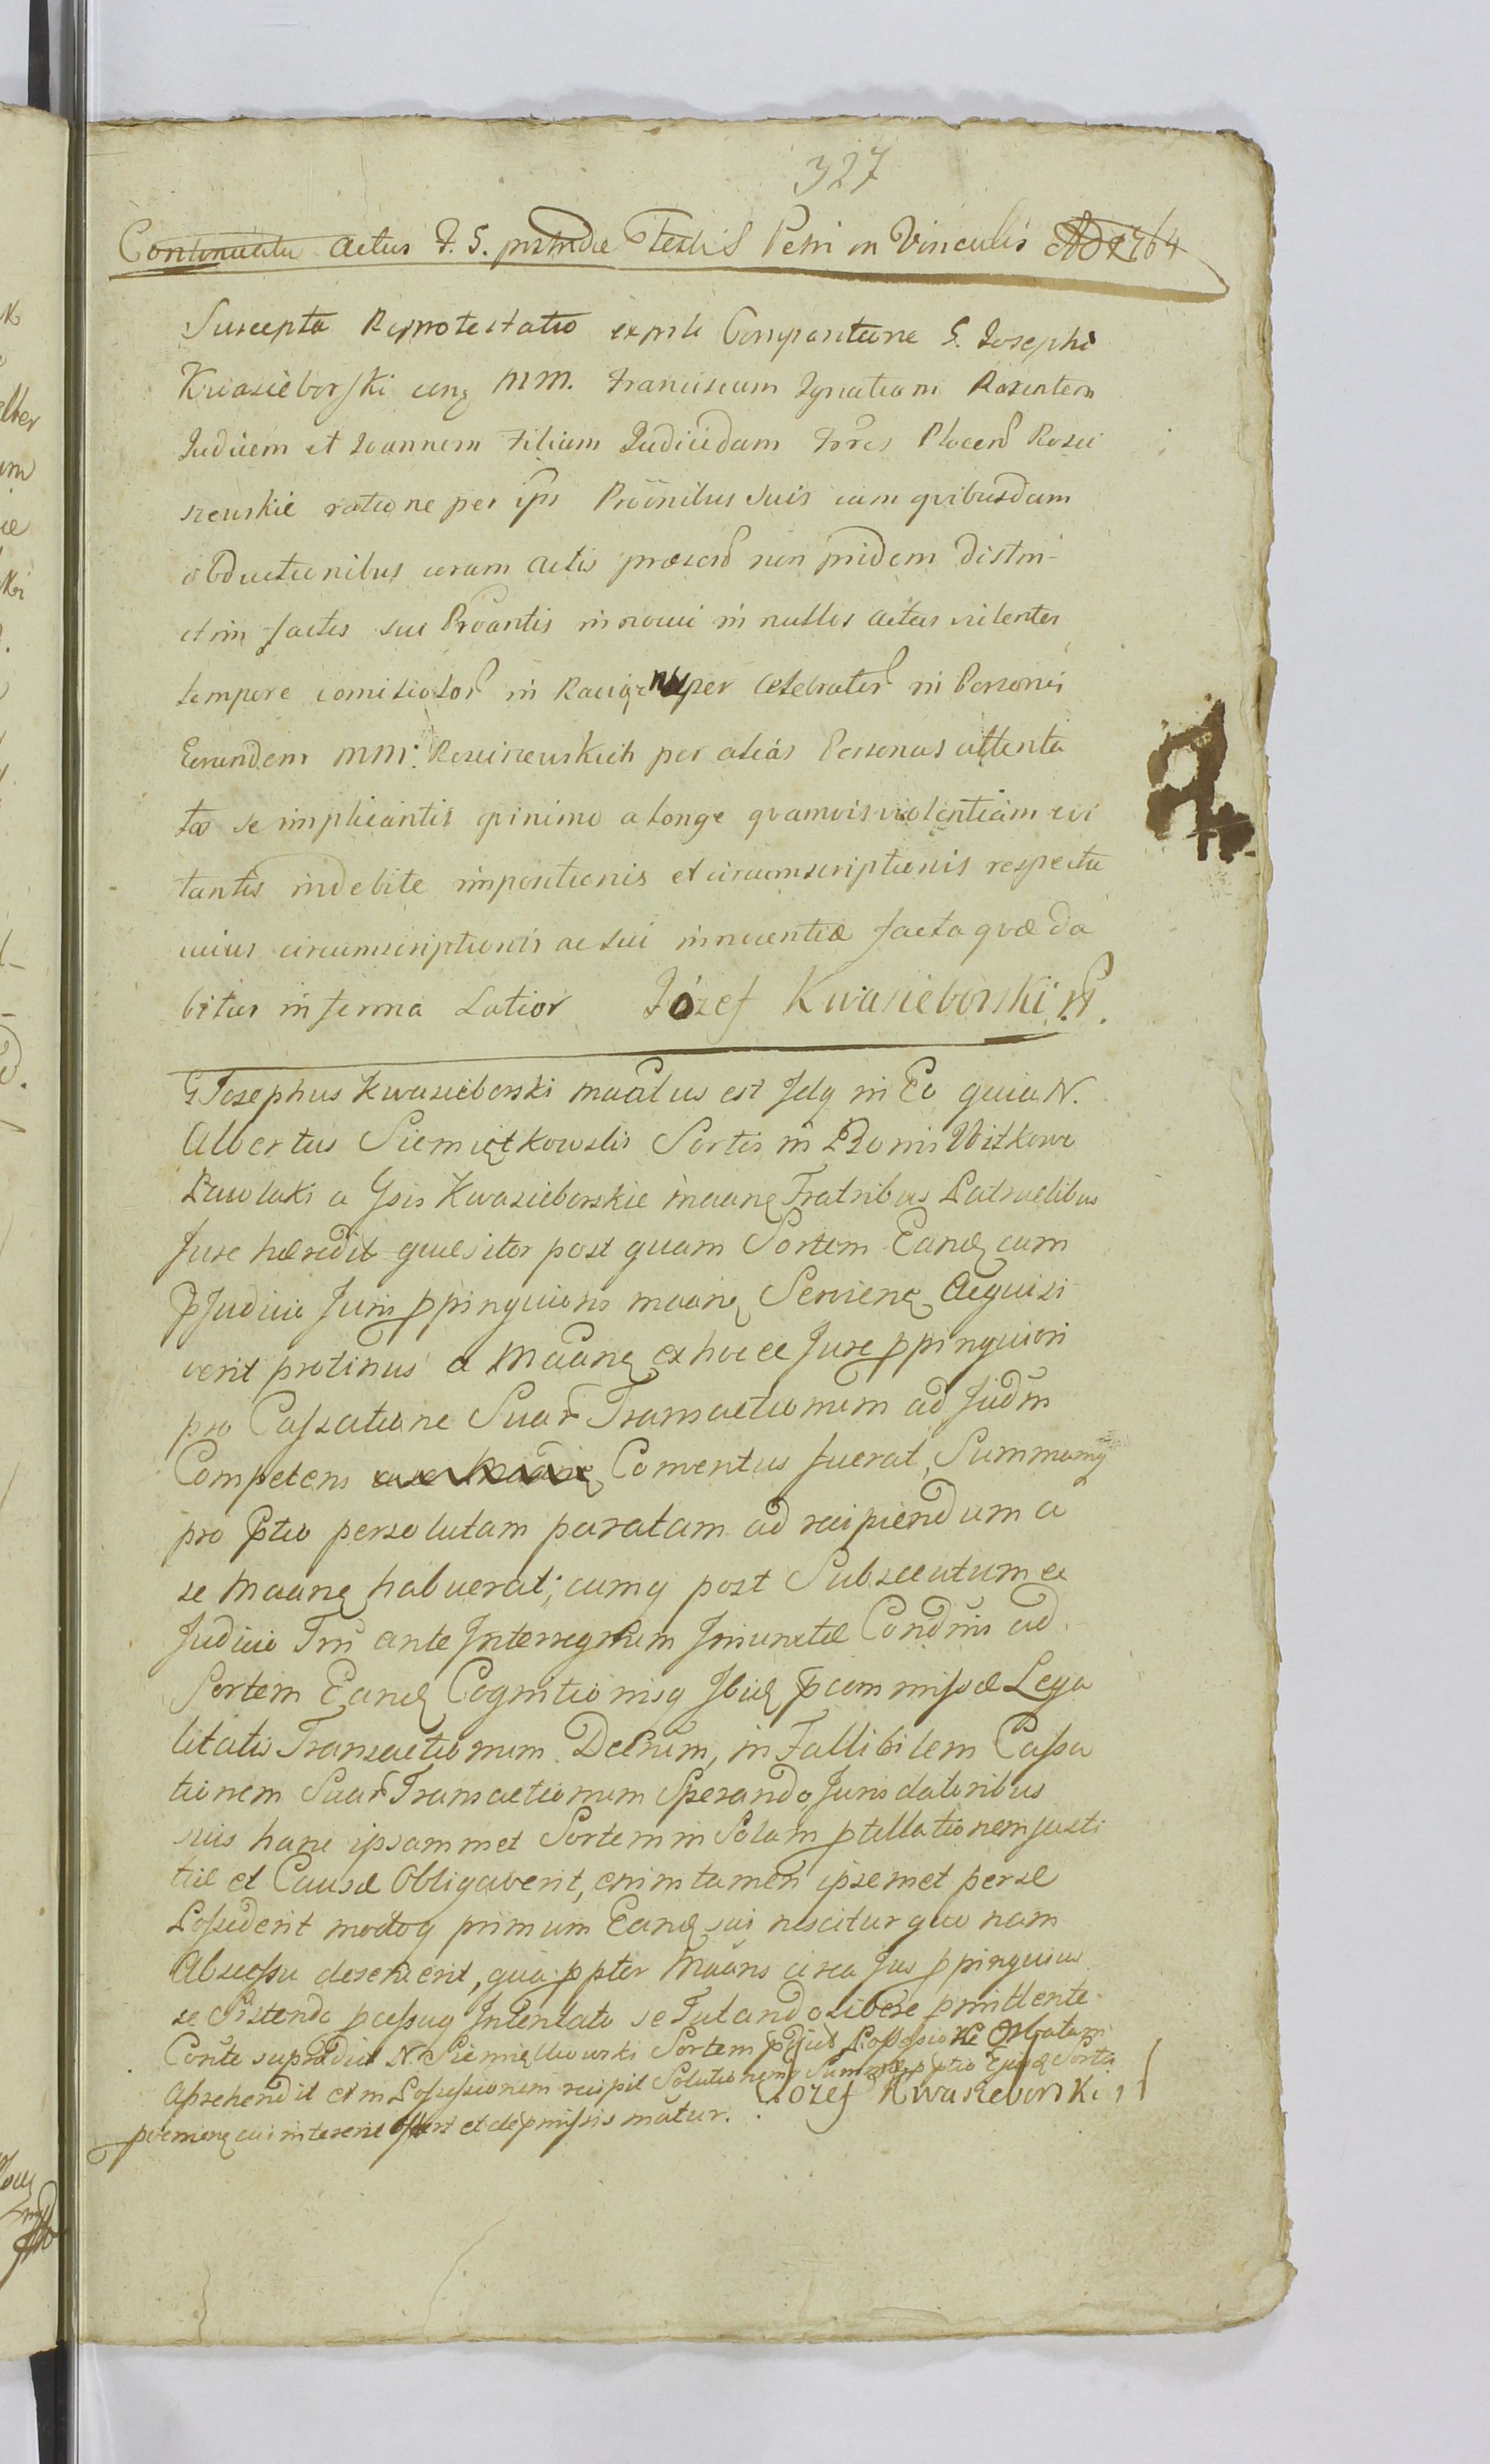 327
Continuatio actus F. 5. postridie Festi S Petri in Vinculis AD 1764
Suscepta Reprotestatio ex prsti Comparitione G. Josephi
Kwasieborski cong MM. Franciscum Ignatium Parentem
Judicem et Joannem Filium Judicidam Trres Plocen Rosci
szewskie ratione per ips Proonibus suis cum quibusdam
obductionibus coram actis praesen non pridem distri-
ct im factis sui Proantis in nouui in nullos actus violentos
tempore comitiolor in Raciąz nuper celebrator in Personis
Eorundem MM. Rosciszewskich per alias Personas attenta
tos se implicantis qvinimo a longe qvamvis violentiam evi
tantis indebite impositionis et circumscriptionis respectu
cuius circumscriptionis ac sui innocentiae facta qvae da
bitur in forma Latior Józef Kwasieborski
G Josephus Kwasieborski maatus est Idq in Eo quia N.
Albertus Siemiątkowski Sortis in Bonis Witkowo
Pawlaki a Gsis Kwasieborskie maane Fratribus Patruelibus
Jure haeredit quaesitor post quam Sortem Eand cum
pjudicio Juris ppinquioris maane Serviene Acquisi
verit protinus a Maane ex hocce Jure ppinquiori
pro Cassatione Suar Transactionum ad Judm
Competens Conventus fuerat, Summamq
pro ptio persolutam paratam ad recipiendum a
se Maane habuerat; cumq post Subsecutum ex
Judicio Trri ante Interregnum Iniunctae Condnis ad
Sortem Eand Cognitionisq Ibid pcommissae Lega
litatis Transactionum Decrum, in Fallibilem Cassa
tionem Suar Transactionum Sperando Juris datoribus
suis hanc ipsammet Sortem in Solam ptellationem justi
tiae et Causae Obligaverit, enim tamen ipsemet per se
Possederit modoq primum Eand sui nescitur quo nam
Absessu deseruerit, qua ppter Maans circa Jus ppinquius
se Sistendo pcessuq Intentato se Tutando libere pmittente
Conte supradict N. Siemiątkowski Sortem Possessione Orbatam
Aprehendit et in Possessionem recipit Solutionemq Summae pptio Ejusd Sortis
pvenieng cui intererit offert et de pmissis matur. Jozef Kwasieborski